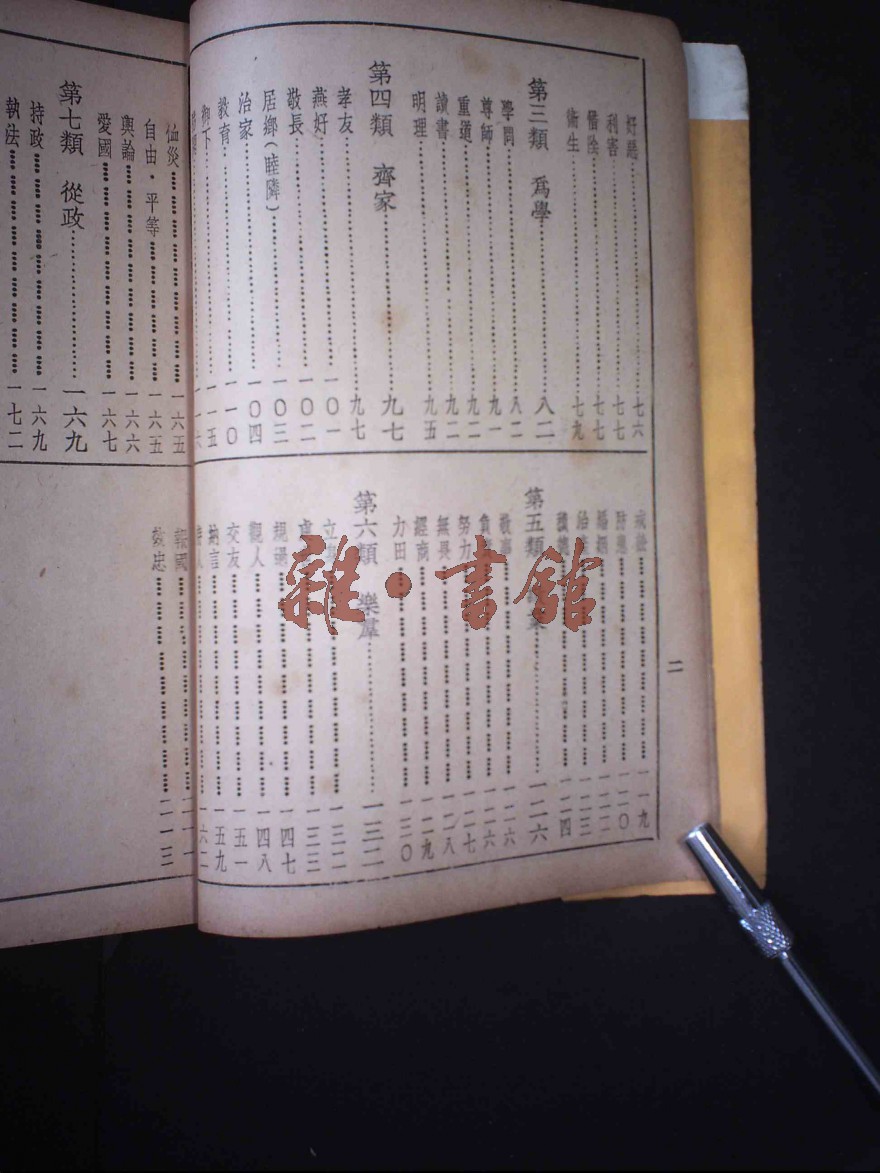 好惡 七六
利害 七七
惜陰 七七
衛生 七九
第三類 爲學 八二
學問 八二
尊師 九一
重道 九二
讀書 九二
明理 九五
第四類 齊家 九七
孝友 九七
燕好 一〇一
敬長 一〇二
居鄉(睦隣) 一〇三
治家 一〇四
教育 一一〇
御下 一一五
一一六
一一九
防患 一二〇
婚姻 一二二
一二三
一二四
第五類 業 一二六
敬事 一二六
一二六
努力 一二七
無畏 一二八
經商 一二九
力田 一三〇
第六類 樂羣 一三二
立 一三二
一三三
規過 一四七
觀人 一四八
交友 一五一
納言 一五九
待人 一六二
恤災 一六五
自由·平等 一六五
輿論 一六六
愛國 一六七
第七類 從政 一六九
持政 一六九
執法 一七二
報國 二一一
效忠 二一三
二
雜·書館